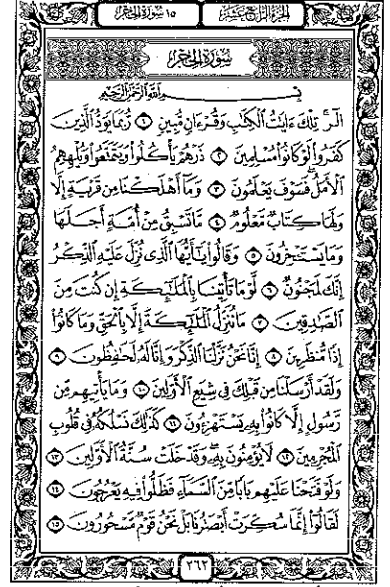 الجزء الرابع عشر
١٥ سورة الحجر
سورة الحجر
بسم الله الرحمن الرحيم
الٓرۚ تِلۡكَ ءَايَٰتُ ٱلۡكِتَٰبِ وَقُرۡءَانٖ مُّبِينٖ ١ رُّبَمَا يَوَدُّ ٱلَّذِينَ
كَفَرُواْ لَوۡ كَانُواْ مُسۡلِمِينَ ٢ ذَرۡهُمۡ يَأۡكُلُواْ وَيَتَمَتَّعُواْ وَيُلۡهِهِمُ
ٱلۡأَمَلُۖ فَسَوۡفَ يَعۡلَمُونَ ٣ وَمَآ أَهۡلَكۡنَا مِن قَرۡيَةٍ إِلَّا
وَلَهَا كِتَابٞ مَّعۡلُومٞ ٤ مَّا تَسۡبِقُ مِنۡ أُمَّةٍ أَجَلَهَا
وَمَا يَسۡتَـٔۡخِرُونَ ٥ وَقَالُواْ يَٰٓأَيُّهَا ٱلَّذِي نُزِّلَ عَلَيۡهِ ٱلذِّكۡرُ
إِنَّكَ لَمَجۡنُونٞ ٦ لَّوۡ مَا تَأۡتِينَا بِٱلۡمَلَٰٓئِكَةِ إِن كُنتَ مِنَ
ٱلصَّٰدِقِينَ ٧ مَا نُنَزِّلُ ٱلۡمَلَٰٓئِكَةَ إِلَّا بِٱلۡحَقِّ وَمَا كَانُوٓاْ
إِذٗا مُّنظَرِينَ ٨ إِنَّا نَحۡنُ نَزَّلۡنَا ٱلذِّكۡرَ وَإِنَّا لَهُۥ لَحَٰفِظُونَ ٩
وَلَقَدۡ أَرۡسَلۡنَا مِن قَبۡلِكَ فِي شِيَعِ ٱلۡأَوَّلِينَ ١٠ وَمَا يَأۡتِيهِم مِّن
رَّسُولٍ إِلَّا كَانُواْ بِهِۦ يَسۡتَهۡزِءُونَ ١١ كَذَٰلِكَ نَسۡلُكُهُۥ فِي قُلُوبِ
ٱلۡمُجۡرِمِينَ ١٢ لَا يُؤۡمِنُونَ بِهِۦ وَقَدۡ خَلَتۡ سُنَّةُ ٱلۡأَوَّلِينَ ١٣
وَلَوۡ فَتَحۡنَا عَلَيۡهِم بَابٗا مِّنَ ٱلسَّمَآءِ فَظَلُّواْ فِيهِ يَعۡرُجُونَ ١٤
لَقَالُوٓاْ إِنَّمَا سُكِّرَتۡ أَبۡصَٰرُنَا بَلۡ نَحۡنُ قَوۡمٞ مَّسۡحُورُونَ ١٥
٣٦٢